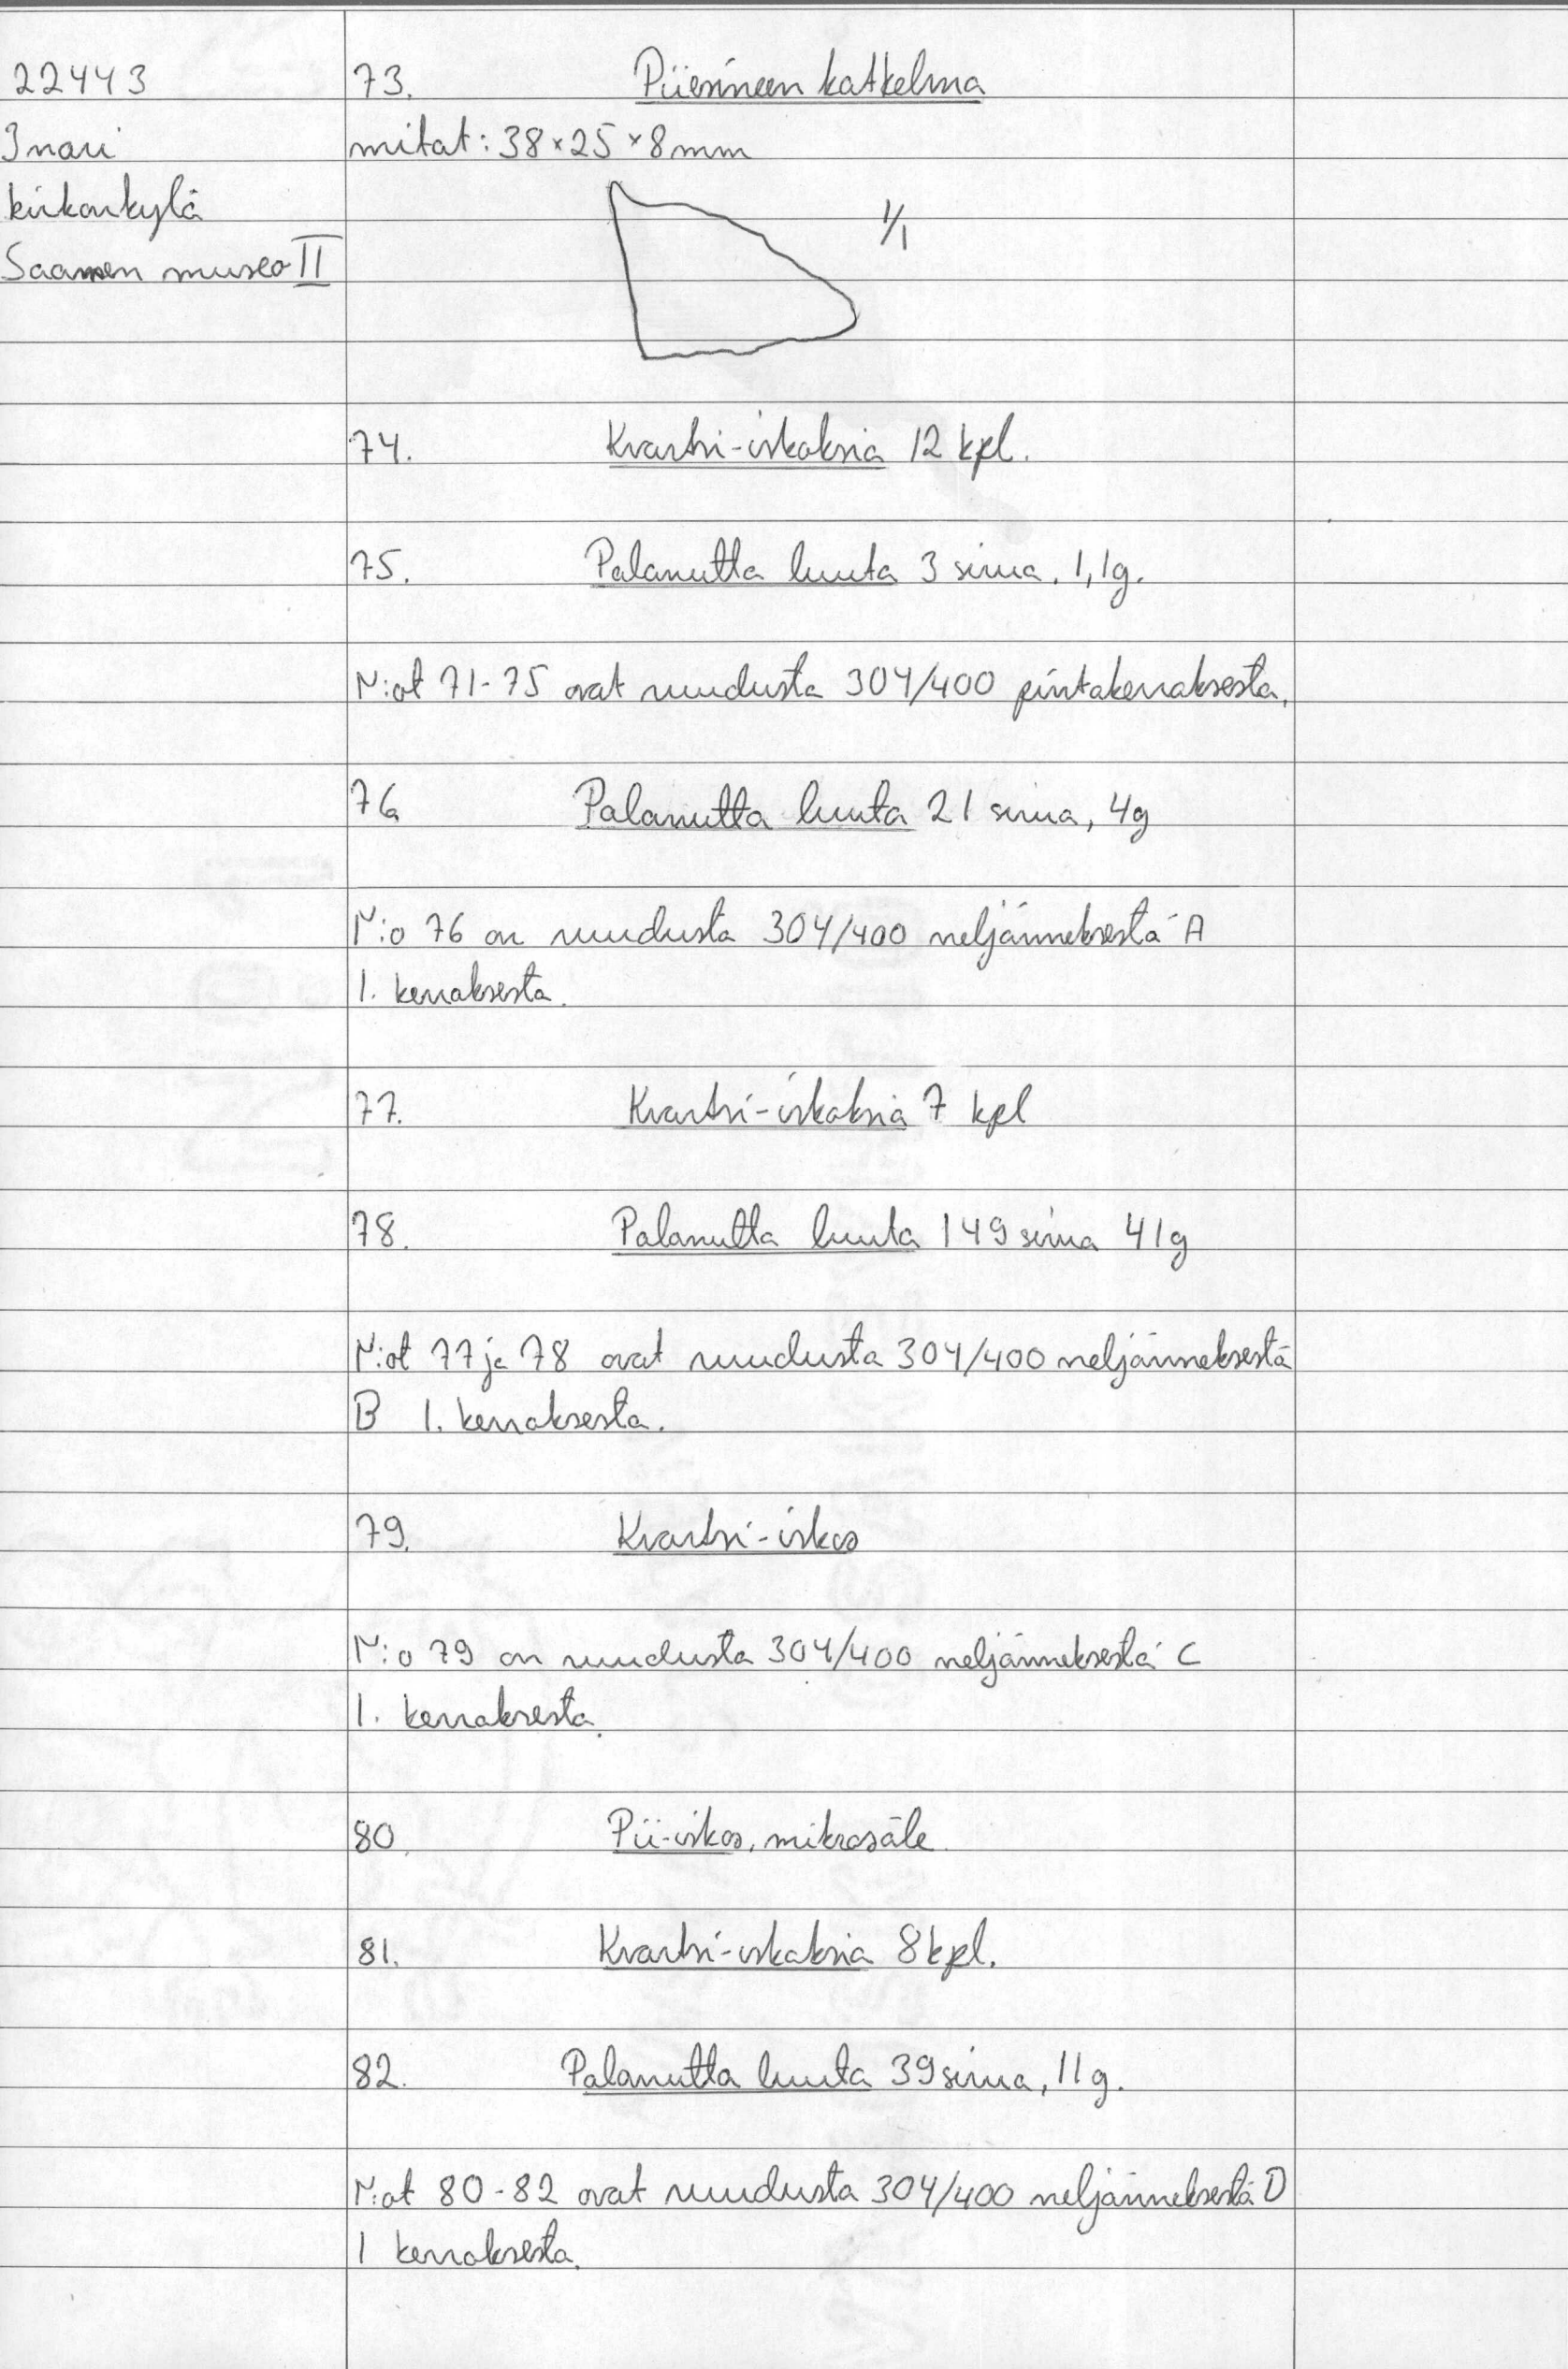 22443
Inari
kirkonkylä
Saamen museo II
73. Piiesineen katkelma
mitat: 38×25×8mm
1/1
74. Kvartsi-iskoksia 12 kpl.
75. Palanutta luuta 3 sirua, 1,1g.
N:ot 71-75 ovat ruudusta 304/400 pintakerroksesta.
76 Palanutta luuta 21 sirua, 4g
N:o 76 on ruudusta 304/400 neljänneksestä A
1. kerroksesta.
77. Kvartsi-iskoksia 7 kpl
78. Palanutta luuta 149 sirua 41g
N:ot 77 ja 78 ovat ruudusta 304/400 neljänneksestä
B 1. kerroksesta.
79. Kvartsi-iskos
N:o 79 on ruudusta 304/400 neljänneksestä C
1. kerroksesta.
80. Pii-iskos, mikrosäle.
81. Kvartsi-iskoksia 8 kpl.
82. Palanutta luuta 39 sirua, 11g.
N:ot 80-82 ovat ruudusta 304/400 neljänneksestä D
1 kerroksesta.